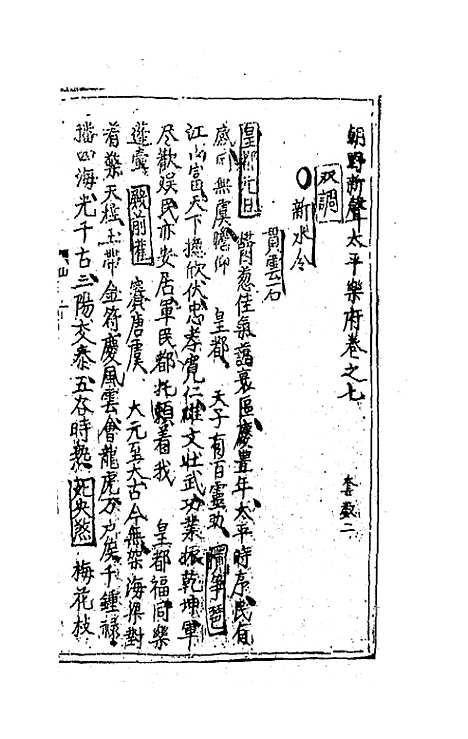 朝野新聲太平樂府卷之七
套數二
双調
新水令
貫雲石
皇都元日 鬱葱佳氣靄寰區慶豊年太平時序民有
感國無虞瞻仰 皇都 天子有百靈助 攪箏琶
江山富天下摠欣伏忠孝寬仁雄文壯武功業振乾坤軍
尽歡娱民亦安居軍民都托賴着我 皇都福同樂
蓬壺 殿前催 賽唐虞 大元至大古今無架海梁對
着檠天柱玉帶金符慶風雲會龍虎万戸侯千鍾祿
播四海光千古三陽交泰五谷時熟 夗央煞 梅花枝